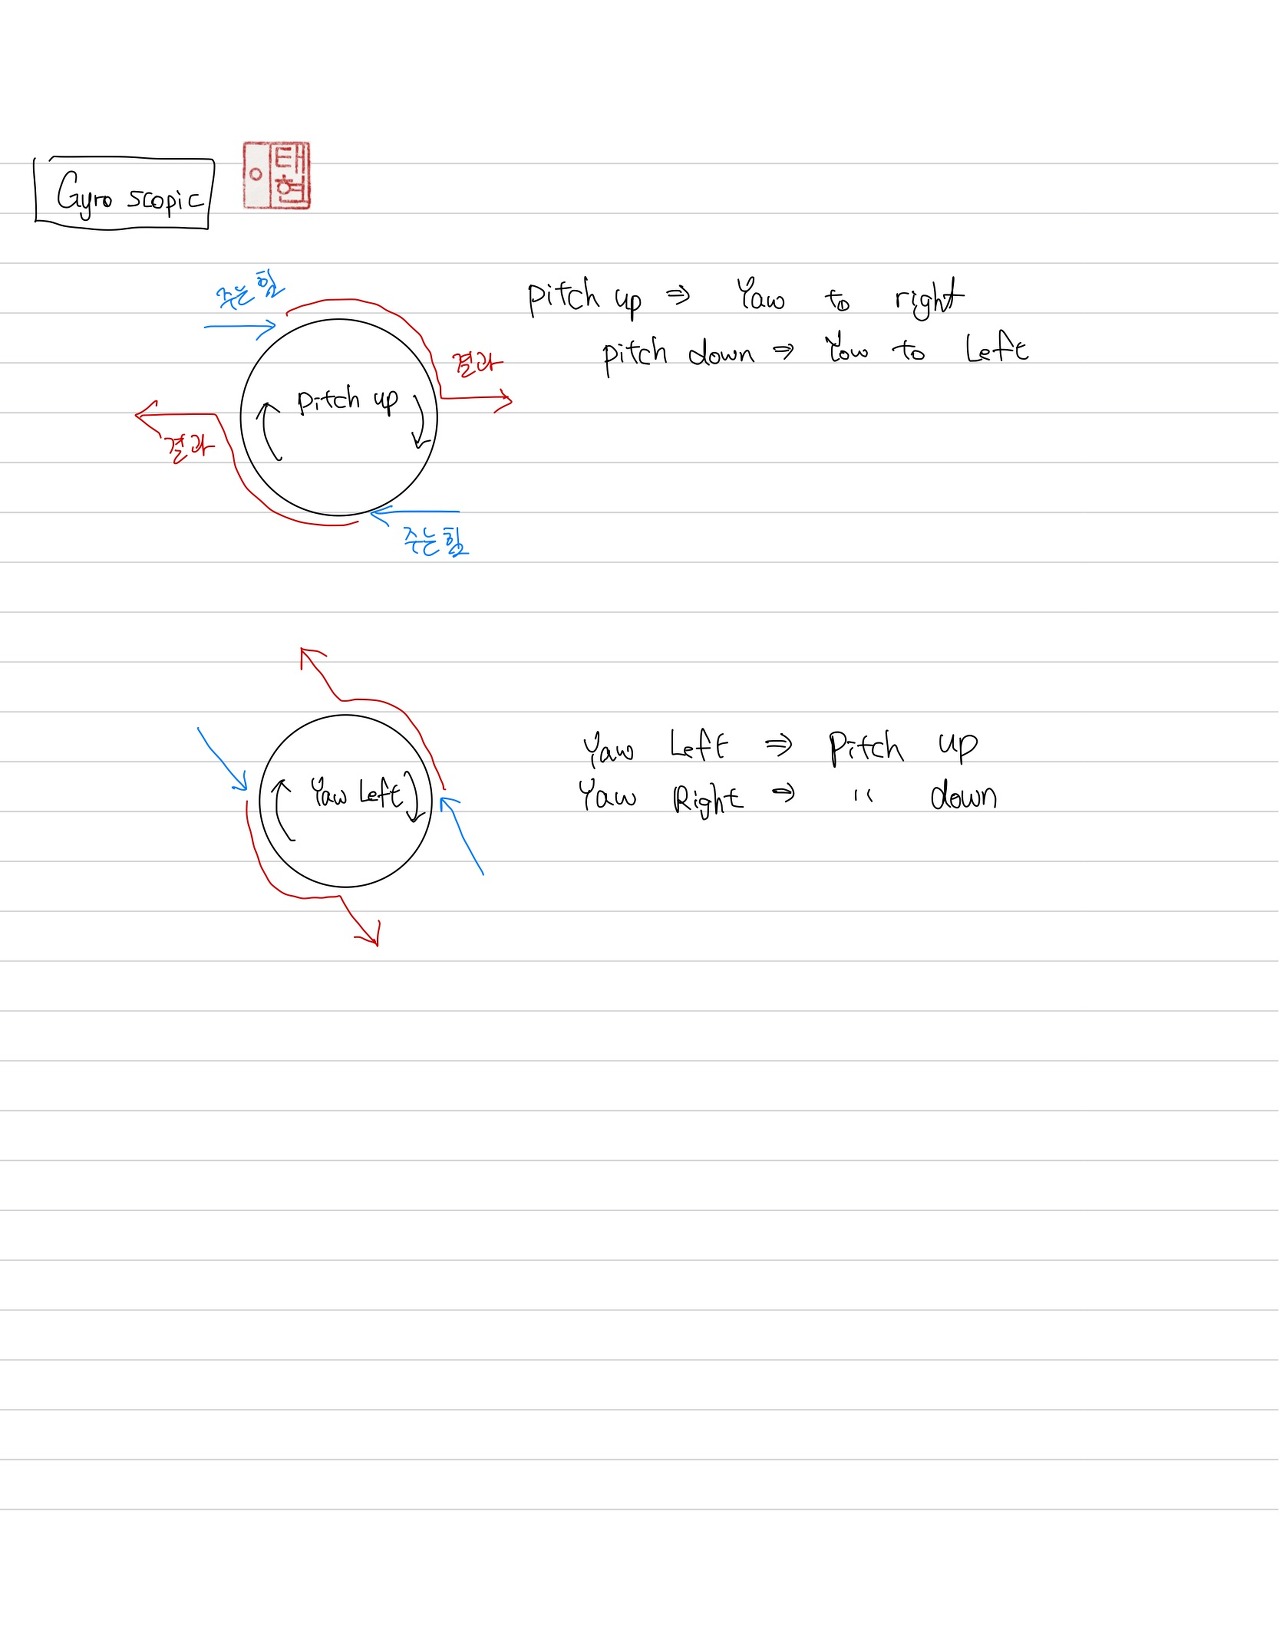 Gyro scopic
이태현
주는힘
pitch up ⇒ Yaw to right
pitch down ⇒ Yow to Left
결과
pitch up
결과
주는힘
Yaw Left ⇒ Pitch up
Yaw Left
Yaw Right ⇒ " down